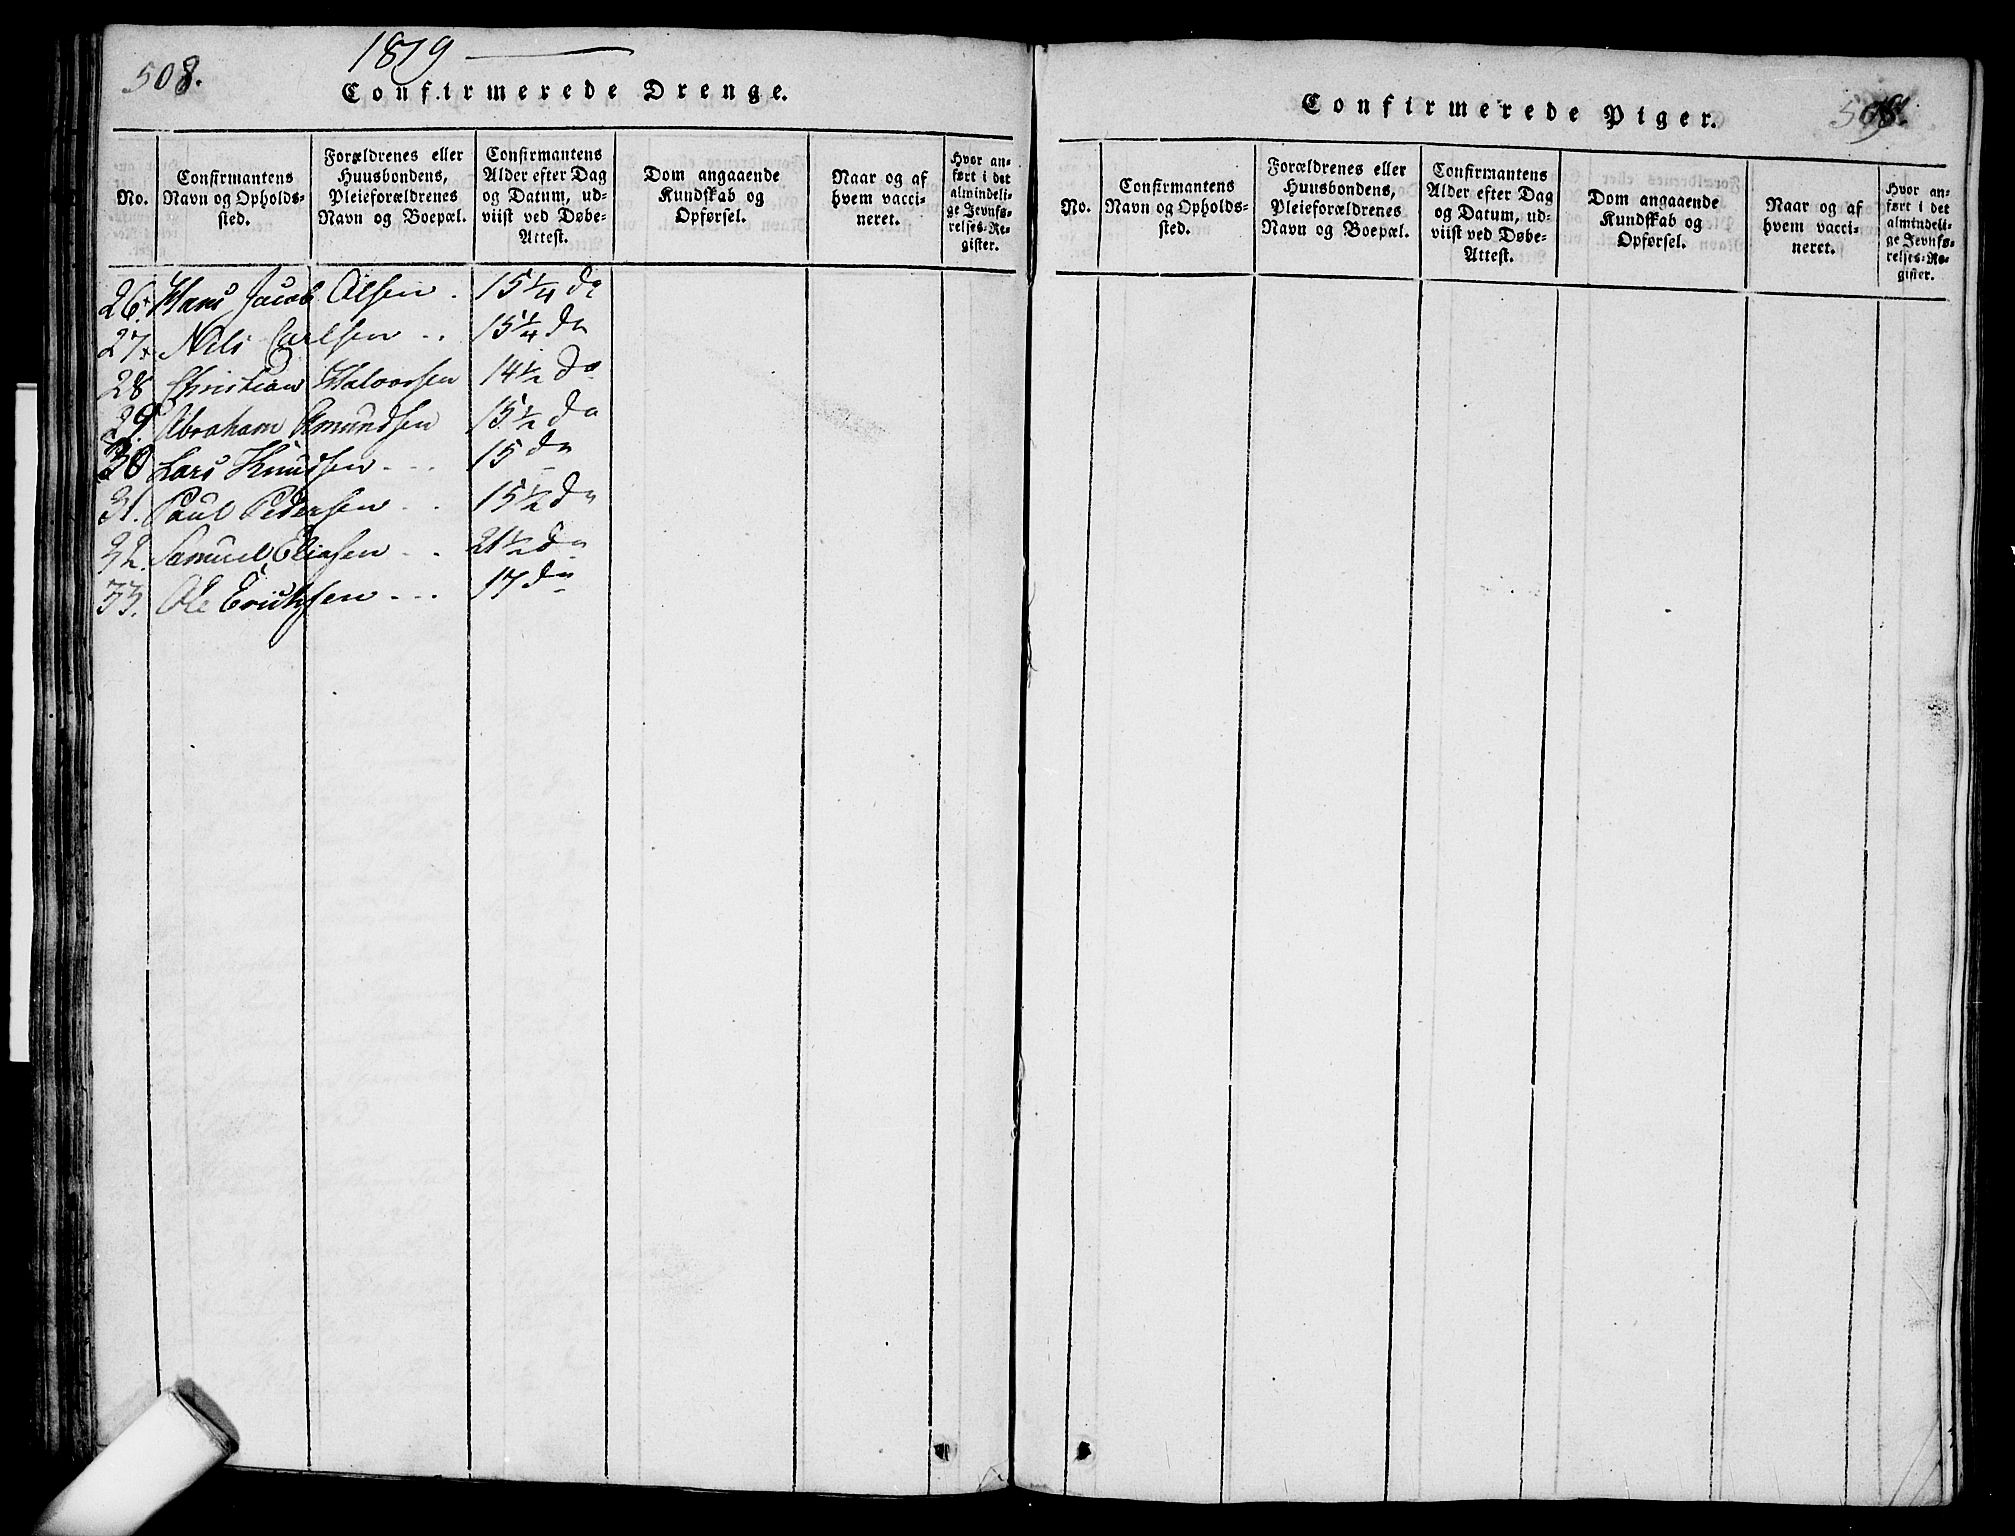 508.
1819
Confirmerede Drenge.
No.
Confirmantens
Navn og Opholds-
sted.
Forældrenes eller
Huusbondens,
Pleieforældrenes
Navn og Boepæl.
Confirmantens
Alder efter Dag
og Datum, ud-
viist ved Døbe-
Attest.
Dom angaaende
Kundskab og
Opførsel.
Naar og af
hvem vacci-
neret.
Hvor an-
ført i det
almindeli-
ge Jevnfø-
relses-Re-
gister.
26. Hans Jacob Olsen . 15 1/4 do
27. Nils Carlsen .. 15 1/4 do
28 Christian Halvorsen 14 1/2 do
29. Abraham Amundsen 15 1/2 do
30 Lars Knudsen - - 15 do
31. Paul Pedersen . . 15 1/2 do
32. Samuel Eliasen - . 21 1/2 do
33. Ole Erichsen - - - 17 do
Confirmerede Piger.
509.
No.
Confirmantens
Navn og Opholds-
sted.
Forældrenes eller
Huusbondens,
Pleieforældrenes
Navn og Boepæl.
Confirmantens
Alder efter Dag
og Datum, ud-
viist ved Døbe-
Attest.
Dom angaaende
Kundskab og
Opførsel.
Naar og af
hvem vacci-
neret.
Hvor an-
ført i det
almindeli-
ge Jevnfø-
relses-Re-
gister.